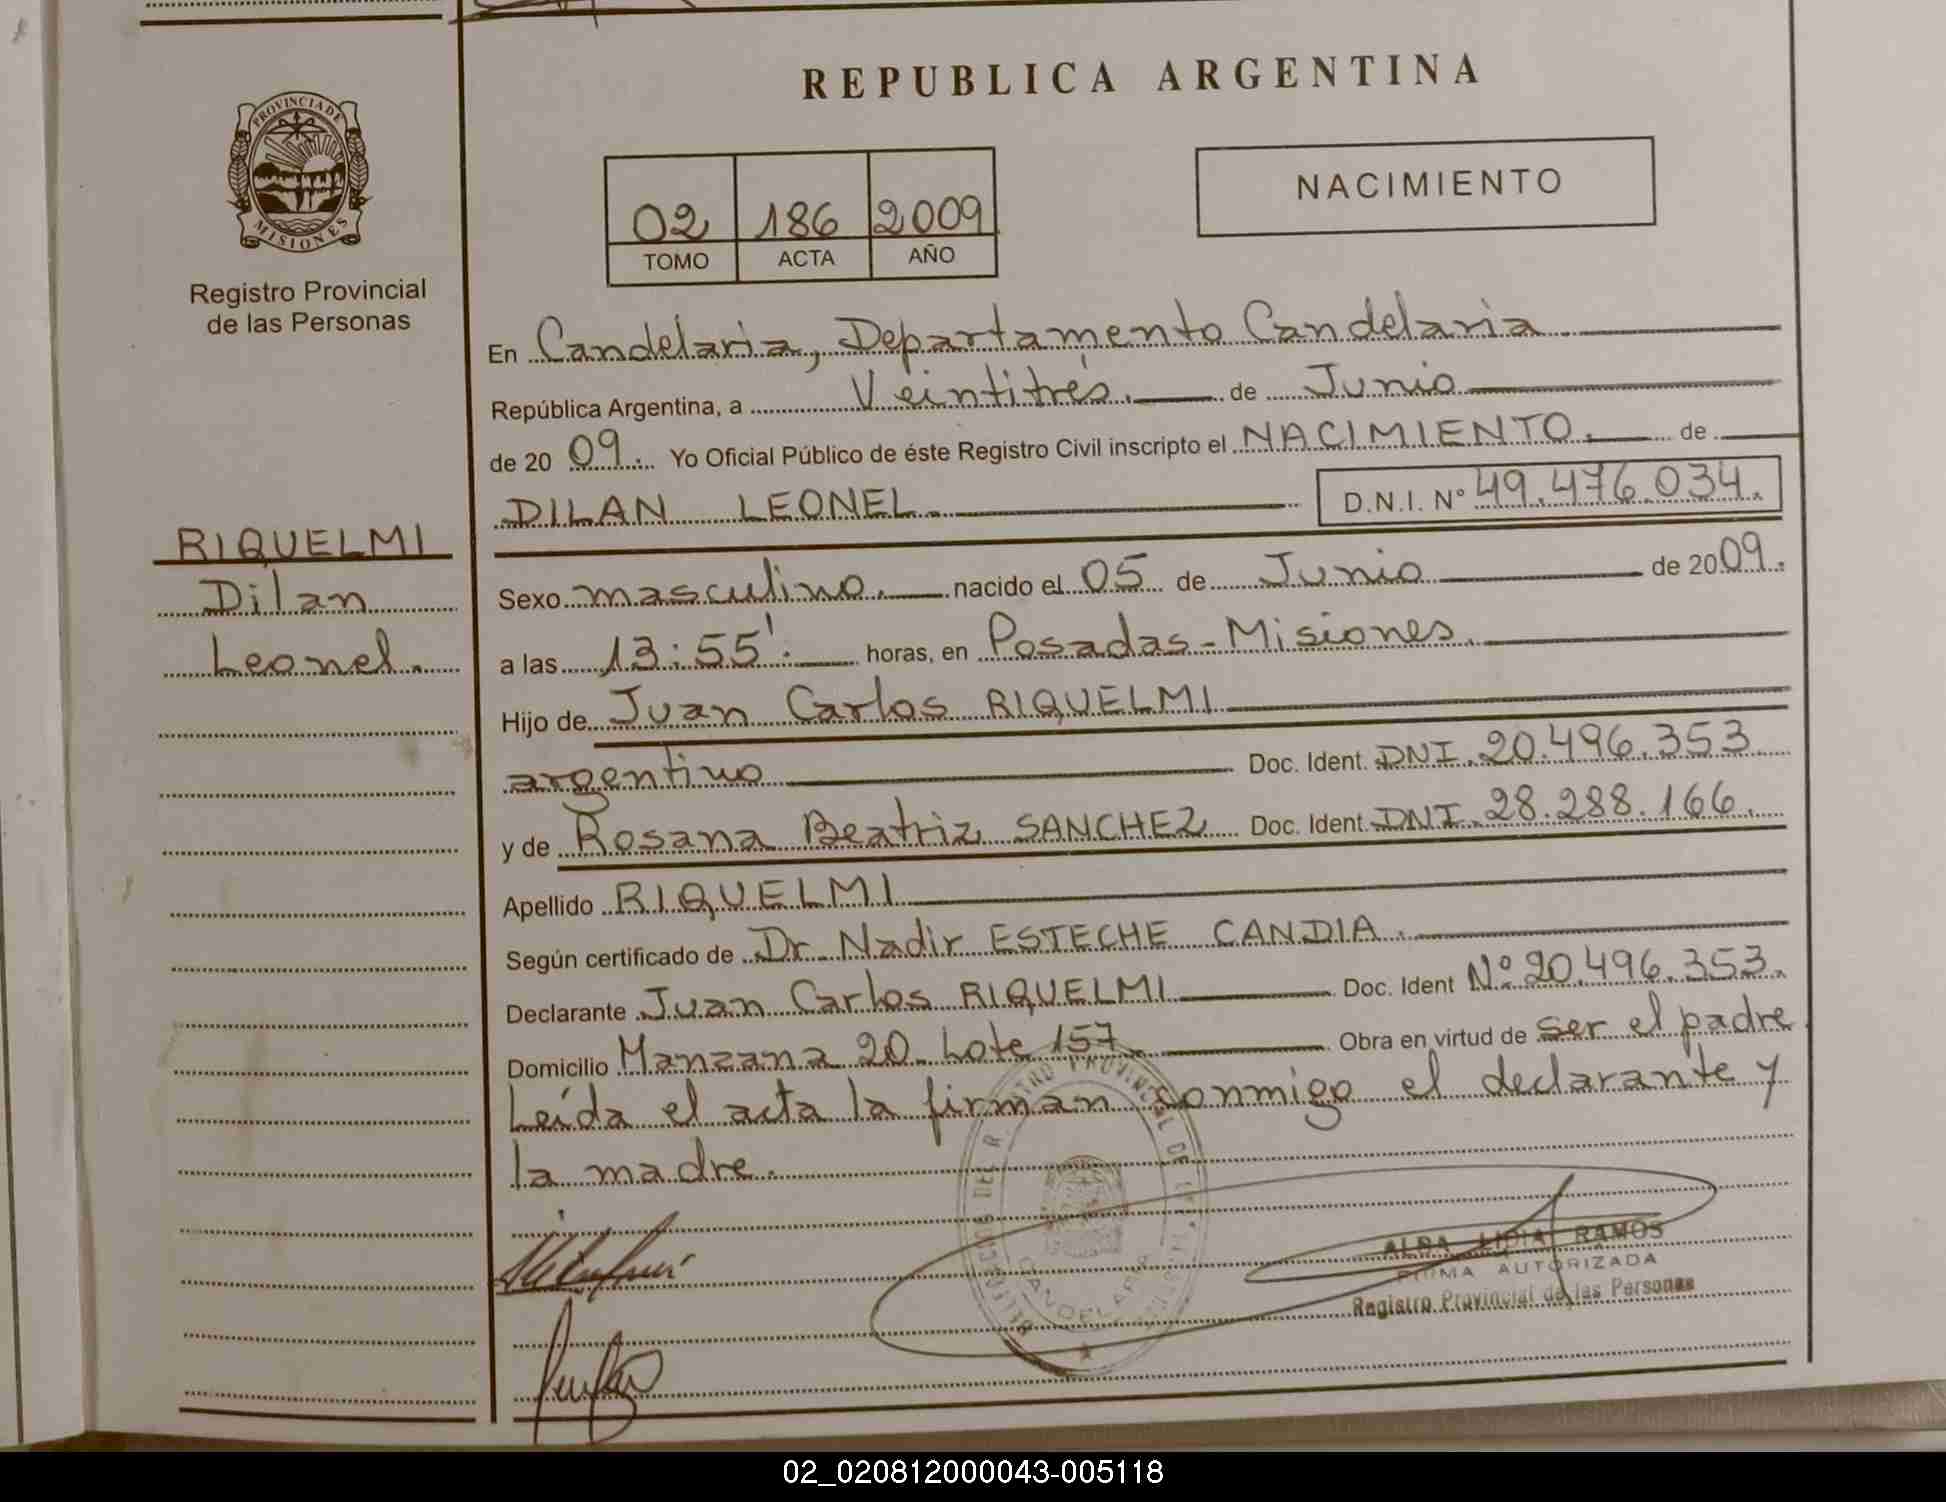 REPUBLICA ARGENTINA
PROVINCIA DE
MISIONES
Registro Provincial
de las Personas
02 186 2009
TOMO ACTA AÑO
NACIMIENTO
En Candelaria, Departamento Candelaria
República Argentina, a Veintitrés. de Junio
de 20 09. Yo Oficial Público de éste Registro Civil inscripto el NACIMIENTO. de
DILAN LEONEL. D.N.I. Nº 49.476.034.
RIQUELMI
Dilan
Leonel.
Sexo masculino. nacido el 05 de Junio de 2009.
a las 13:55'. horas, en Posadas-Misiones.
Hijo de Juan Carlos RIQUELMI
argentino Doc. Ident. DNI. 20.496.353
y de Rosana Beatriz SANCHEZ Doc. Ident. DNI. 28.288.166.
Apellido RIQUELMI
Según certificado de Dr. Nadir ESTECHE CANDIA.
Declarante Juan Carlos RIQUELMI Doc. Ident Nº 20.496.353.
Domicilio Manzana 20 Lote 157 Obra en virtud de ser el padre
Leída el acta la firman conmigo el declarante y
la madre.
ALBA LIDIA RAMOS
FIRMA AUTORIZADA
Registro Provincial de las Personas
CANDELARIA
02_020812000043-005118